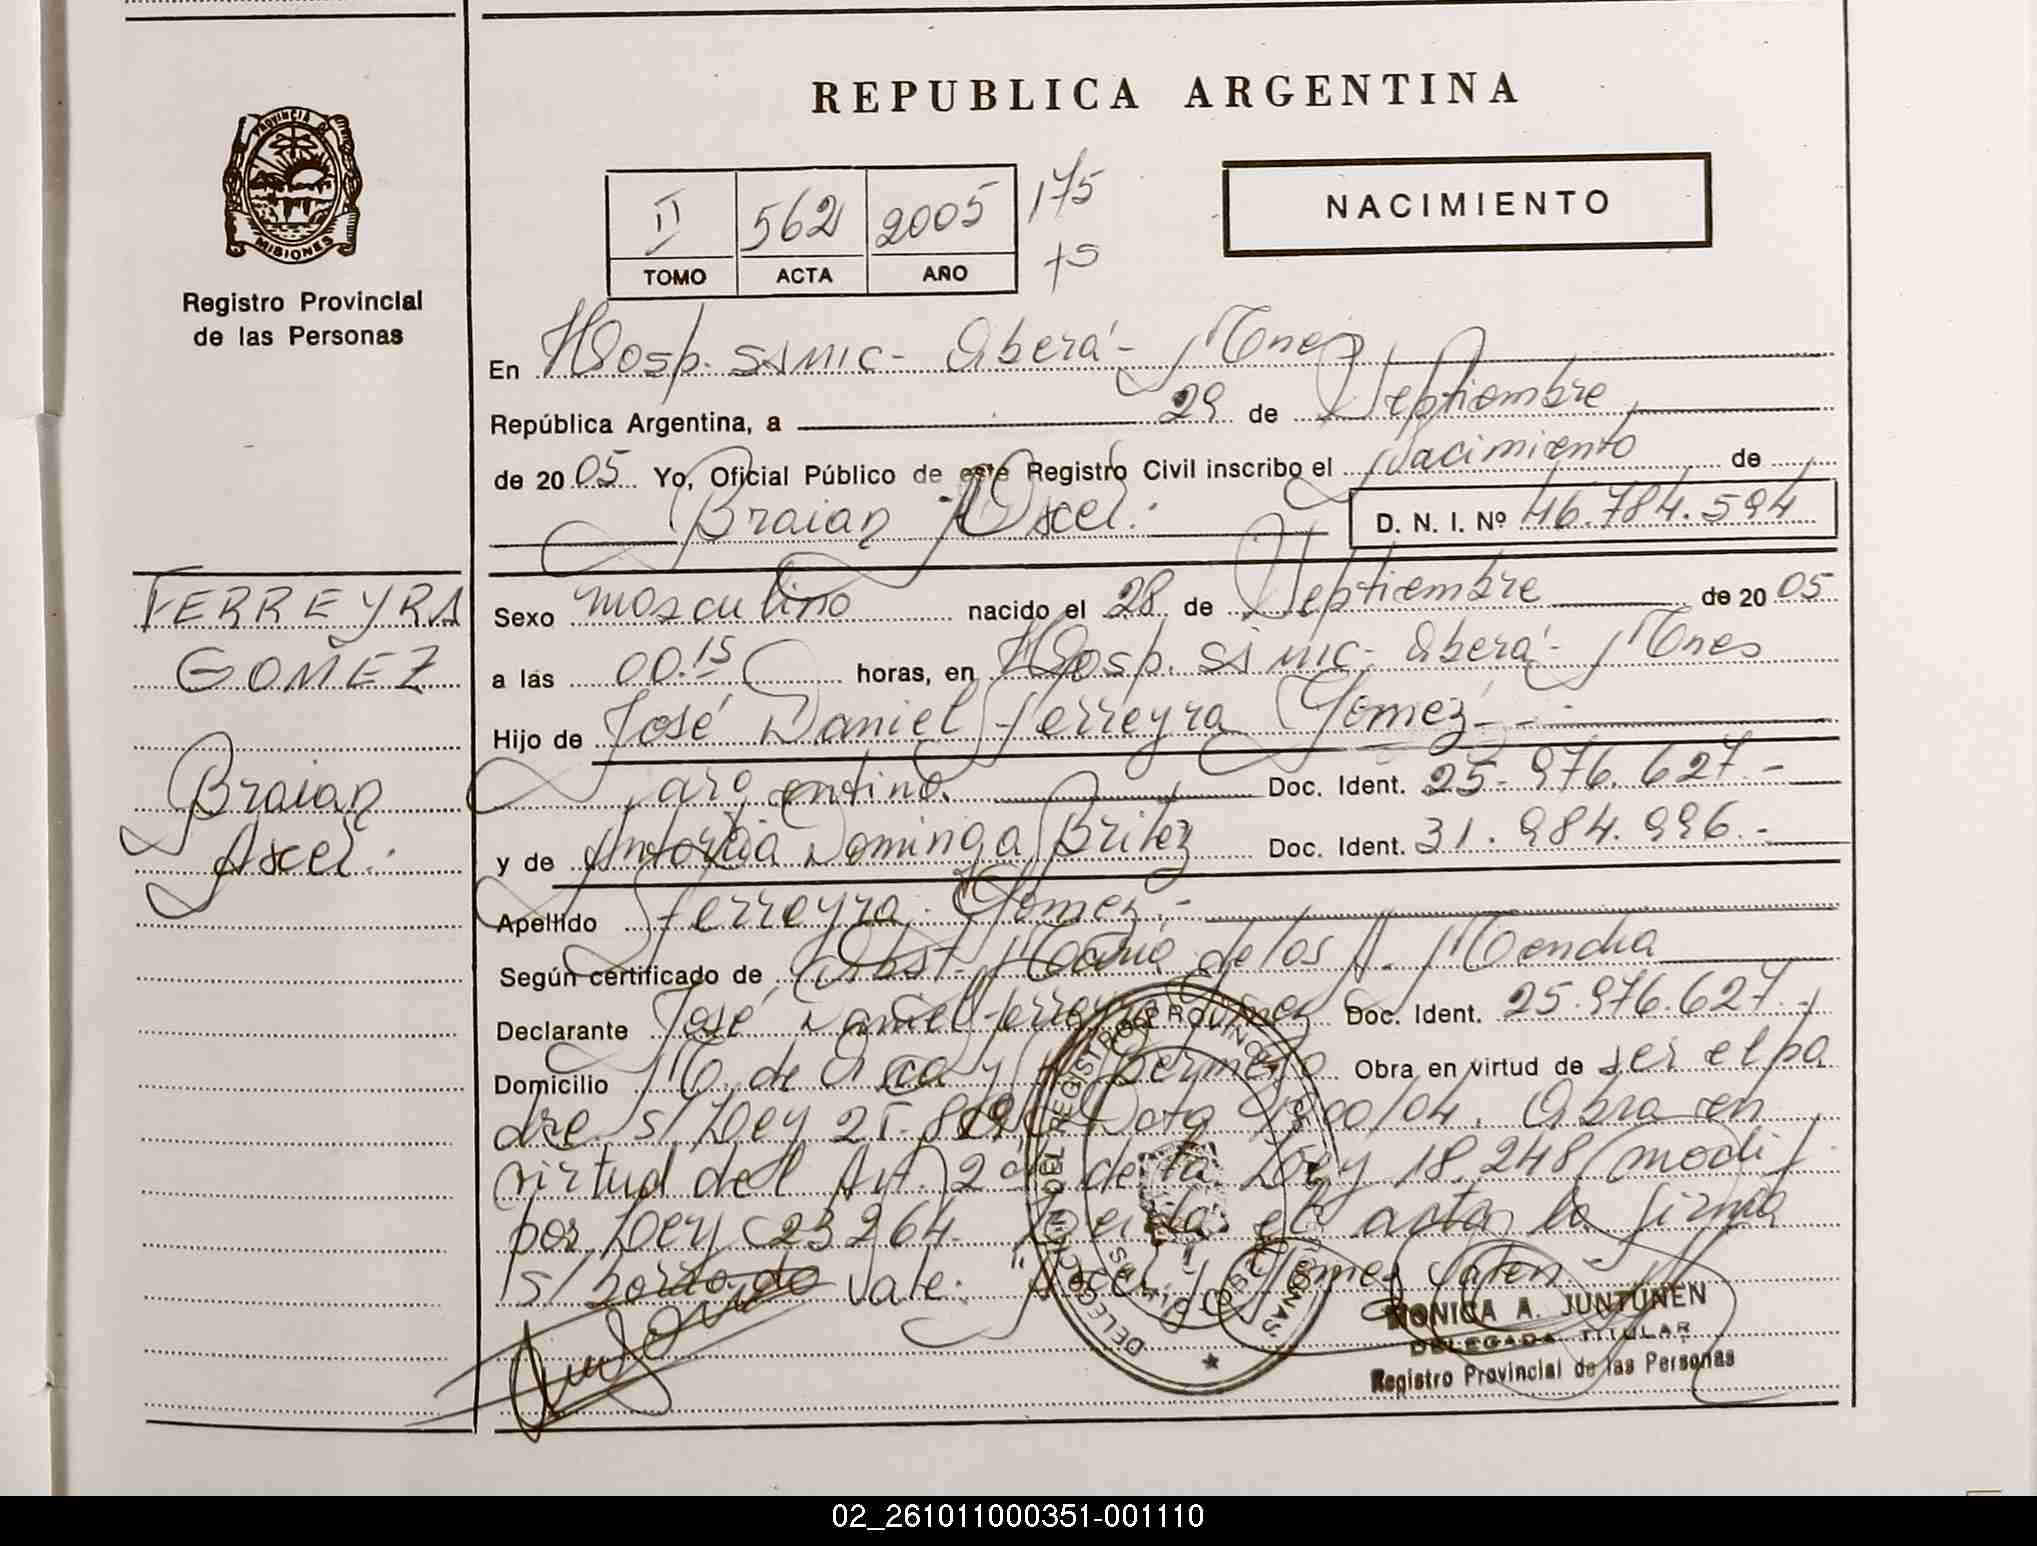 PROVINCIA DE
MISIONES
Registro Provincial
de las Personas
FERREYRA
GOMEZ
Braian
Axel.-
REPUBLICA ARGENTINA
II 562 2005 175
TOMO ACTA AÑO
NACIMIENTO
En Hosp. SAMIC - Oberá - Mnes
República Argentina, a 29 de Septiembre
de 2005 Yo, Oficial Público de este Registro Civil inscribo el Nacimiento de
Braian Axel.- D. N. I. Nº 46.784.594
Sexo masculino nacido el 28 de Septiembre de 2005
a las 00.15 horas, en Hosp. SAMIC - Oberá - Mnes
Hijo de José Daniel Ferreyra Gomez
argentino. Doc. Ident. 25.976.627.-
y de Antonia Dominga Britez Doc. Ident. 31.984.996.-
Apellido Ferreyra Gomez.-
Según certificado de Obst. María de los A. Mendia
Declarante José Daniel Ferreyra Gomez Doc. Ident. 25.976.627.-
Domicilio M. de Oca y Obra en virtud de ser el pa
dre s/Ley Obra en
virtud del Art. 2º de la Ley 18.248 modif.
por Ley 23264. Leida el acta la firma
s/ Vale: Gomez Vale
DELEGACION DEL REGISTRO PROVINCIAL DE LAS PERSONAS
MISIONES
MONICA A. JUNTUNEN
DELEGADA TITULAR
Registro Provincial de las Personas
02_261011000351-001110